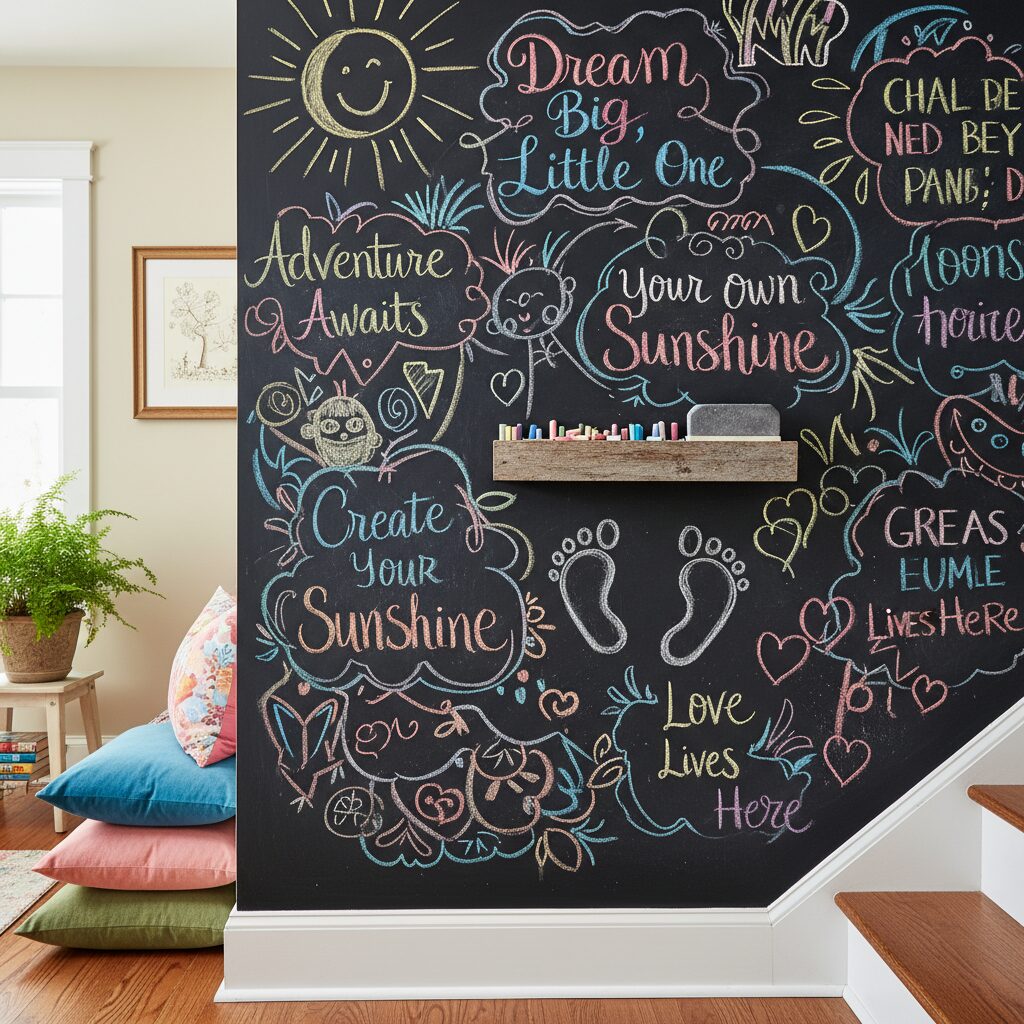 Dream
Big,
Little One
CHAL BE
NED BEY
PANB; D
Adventure
Awaits
Your own
Sunshine
Create
Your
Sunshine
GREAS
EUMLE
Lives Here
Love
Lives
Here